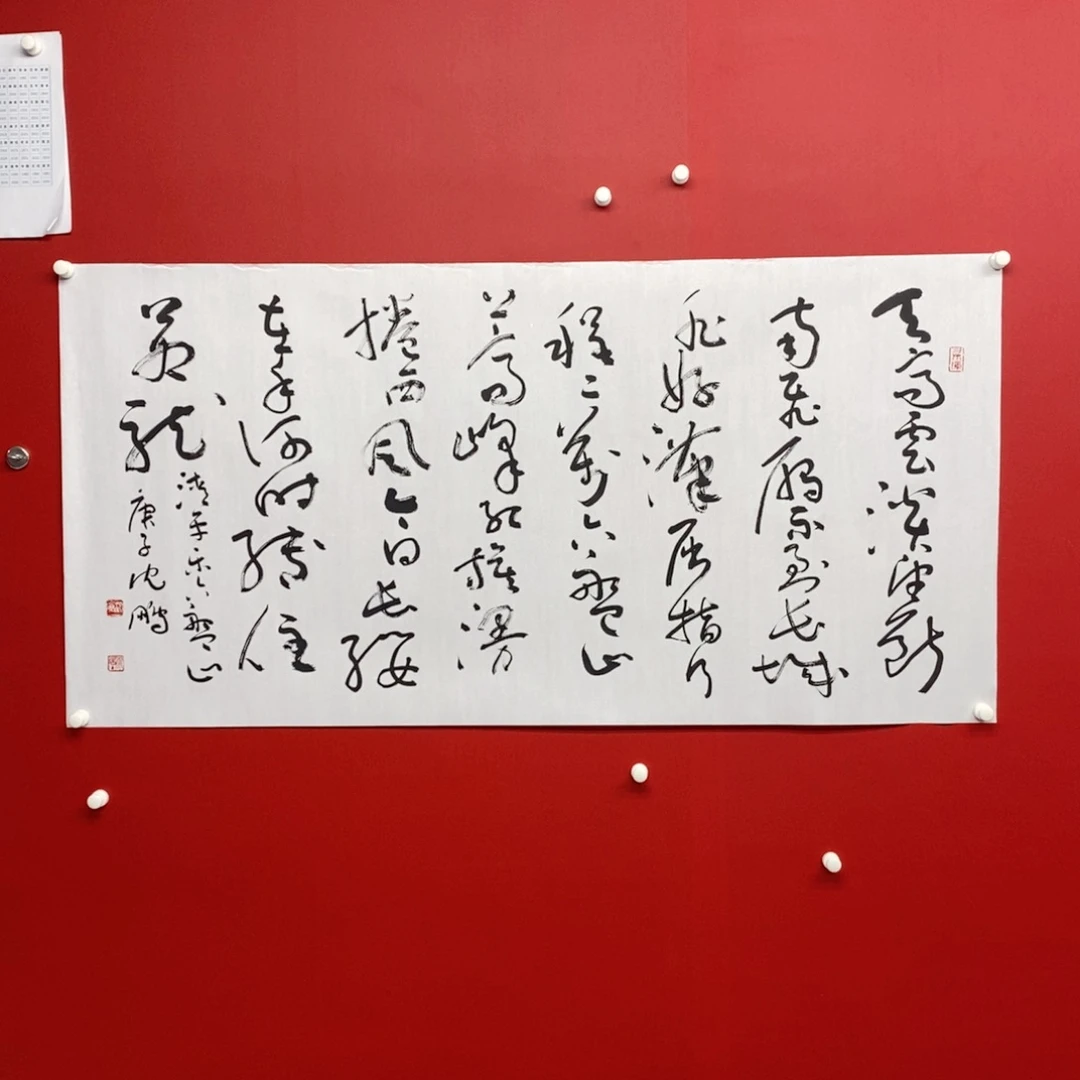 天高雲淡望斷
南飛雁不到長城
非好漢屈指行
程二萬六盤山
上高峰紅旗漫
捲西風今日長纓
在手何時縛住
蒼龍
清平樂六盤山
庚子沈鵬